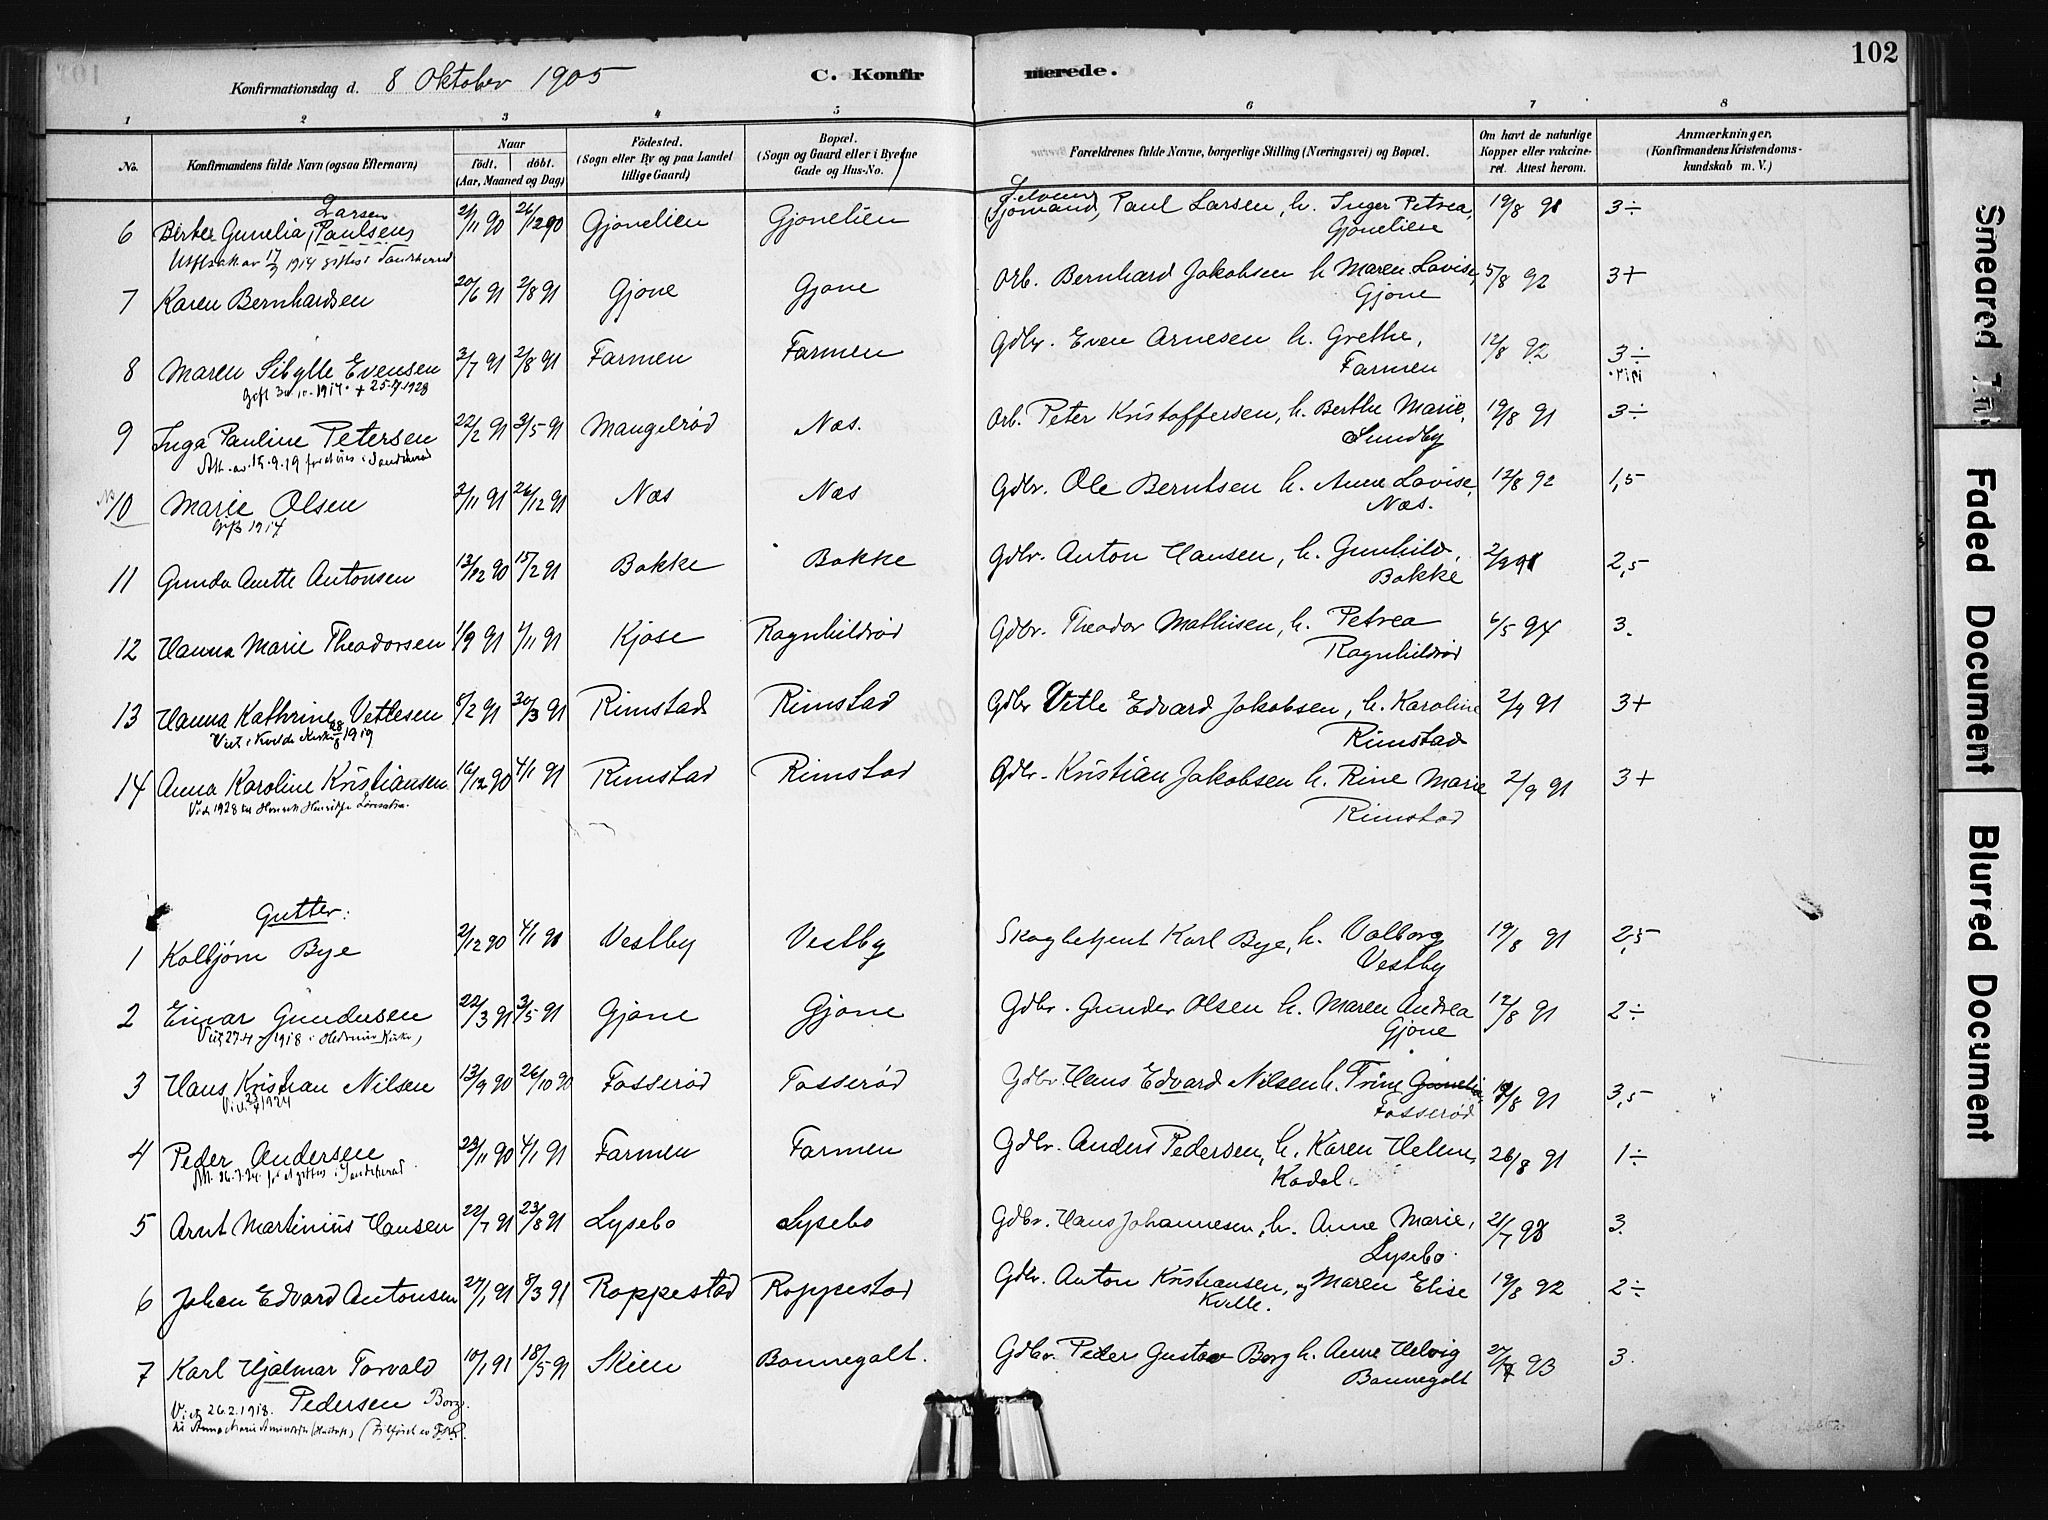 102
Konfirmationsdag d. 8 Oktober 1905 C. Konfirmerede.
1 2 3 4 5 6 7 8
No. Konfirmandens fulde Navn (ogsaa Efternavn) Naar født, døbt. (Aar, Maaned og Dag) Fødested. (Sogn eller By og paa Landet tillige Gaard) Bopæl. (Sogn og Gaard eller i Byerne Gade og Hus-No.) Forældrenes fulde Navne, borgerlige Stilling (Næringsvei) og Bopæl. Om havt de naturlige Kopper eller vakcineret. Attest herom. Anmærkninger, (Konfirmandens Kristendomskundskab m. V.)
Larsen
6 Gunelia Paulsen 2/11 90 26/12 90 Gjonelien Gjonelien Sjømand, Paul Larsen, h. Inger Petrea, 19/8 91 3÷
Gjonelien
17/9 1914 giftes i Sandeherred
7 Karen Bernhardsen 20/6 91 2/8 91 Gjone Gjone Arb. Bernhard Jakobsen h. Maren Lovise, 5/8 92 3+
Gjone
8 Maren Sibylle Evensen 3/7 91 2/8 91 Farmen Farmen Gdbr. Even Arnesen h. Grethe, 12/8 92 3÷
Farmen
1914. + 25-4-1928
9 Inga Pauline Petersen 22/2 91 3/5 91 Mangelrød Næs. Arb. Peter Kristoffersen, h. Berthe Marie, 19/8 91 3÷
Sundby
10 Marie Olsen 3/11 91 26/12 91 Næs Næs Gdbr. Ole Berntsen h. Anne Lovise, 12/8 92 1,5
Næs.
Gift 1917
11 Gunda Anette Antonsen 13/12 90 15/2 91 Bakke Bakke Gdbr. Anton Hansen, h. Gunhild, 2/9 91 2,5
Bakke
12 Hanna Marie Theodorsen 1/9 91 1/11 91 Kjose Ragnhildrød Gdbr. Theodor Mathisen, h. Petrea 6/5 94 3.
Ragnhildrød
13 Hanna Kathrine Vetlesen 8/2 91 30/3 91 Rimstad Rimstad Gdbr Vetle Edvard Jakobsen, h. Karoline 2/9 91 3+
Rimstad
1919
14 Anna Karoline Kristiansen 16/12 90 4/1 91 Rimstad Rimstad Gdbr. Kristian Jakobsen h. Rine Marie 2/9 91 3+
Rimstad
1928
Gutter:
1 Kolbjørn Bye 2/12 90 4/1 91 Vestby Vestby Skogbetjent Karl Bye, h. Valborg 19/8 91 2,5
Vestby
2 Einar Gundersen 22/3 91 3/5 91 Gjone Gjone Gdbr. Gunder Olsen h. Maren Andrea 12/8 91 2÷
Gjone
1918 i Hedrum Kirke
3 Hans Kristian Nilsen 13/9 90 26/10 90 Fosserød Fosserød Gdbr. Hans Edvard Nilsen h. Trine Gunelia 8/91 3,5
Fosserød
1924
4 Peder Andersen 23/11 90 4/1 91 Farmen Farmen Gdbr. Anders Pedersen, h. Karen Helene, 26/8 91 1÷
Kodal.
5 Arnt Martinius Hansen 22/7 91 23/8 91 Lysebo Lysebo Gdbr. Hans Johannesen, h. Anne Marie, 21/7 98 3.
Lysebo.
6 Johan Edvard Antonsen 27/1 91 8/3 91 Roppestad Roppestad Gdbr. Anton Kristiansen, og Maren Elise 19/8 92 2÷
Kville.
7 Karl Hjalmar Torvald 10/1 91 18/5 91 Skien Bonnegolt. Gdbr. Peder Gustav Borg h. Anne Helvig 93 3.
Bonnegolt
Pedersen Borg.
26.2.1918.
Smeared
Faded Document
Blurred Document